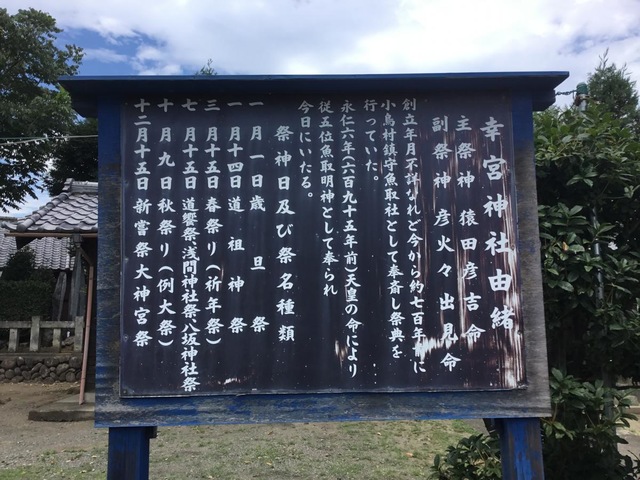 幸宮神社由緒
主祭神 猿田彦吉命
副祭神 彦火々出見命
創立年月不詳なれど今から約七百年前に
小鳥村鎮守魚取社として奉斎し祭典を
行っていた。
永仁六年(六百九十五年前)天皇の命により
従五位魚取明神として奉られ
今日にいたる。
祭神日及び祭名種類
一月一日歳旦祭
一月十四日道祖神祭
三月十五日春祭り(祈年祭)
七月十五日道饗祭浅間神社祭八坂神社祭
十月九日秋祭り(例大祭)
十二月十五日新嘗祭大神宮祭